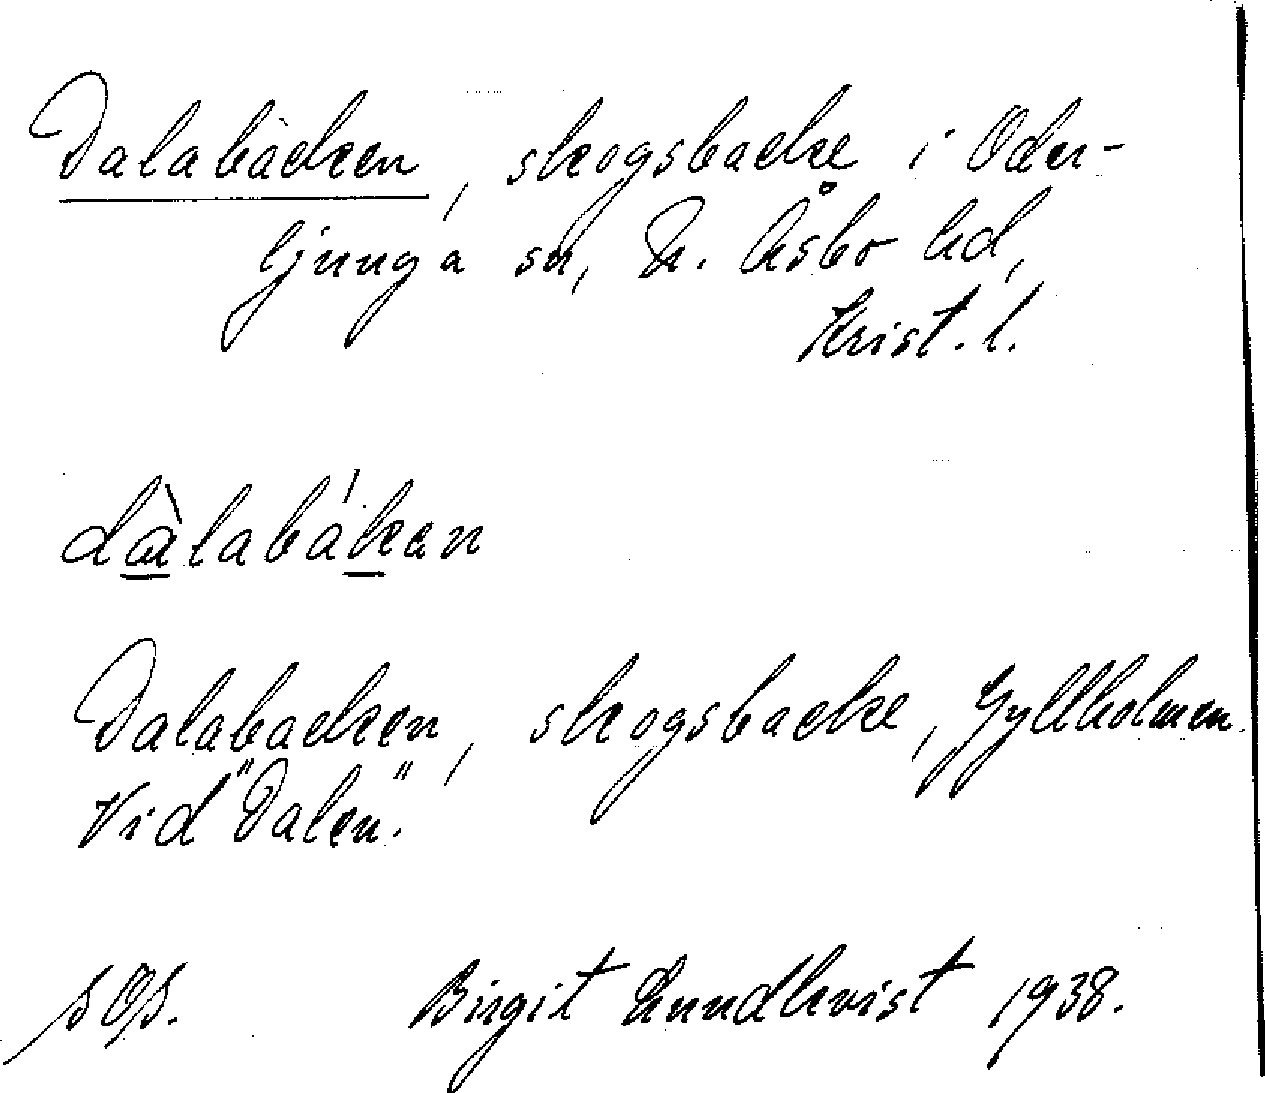 Dalabacken, skogsbacke i Oder-
ljunga sn, N. Åsbo hd,
Krist. l.
dàlabákan
Dalabacken, skogsbacke, Gyllholmen.
Vid "Dalen".
Birgit Lundkvist 1938.